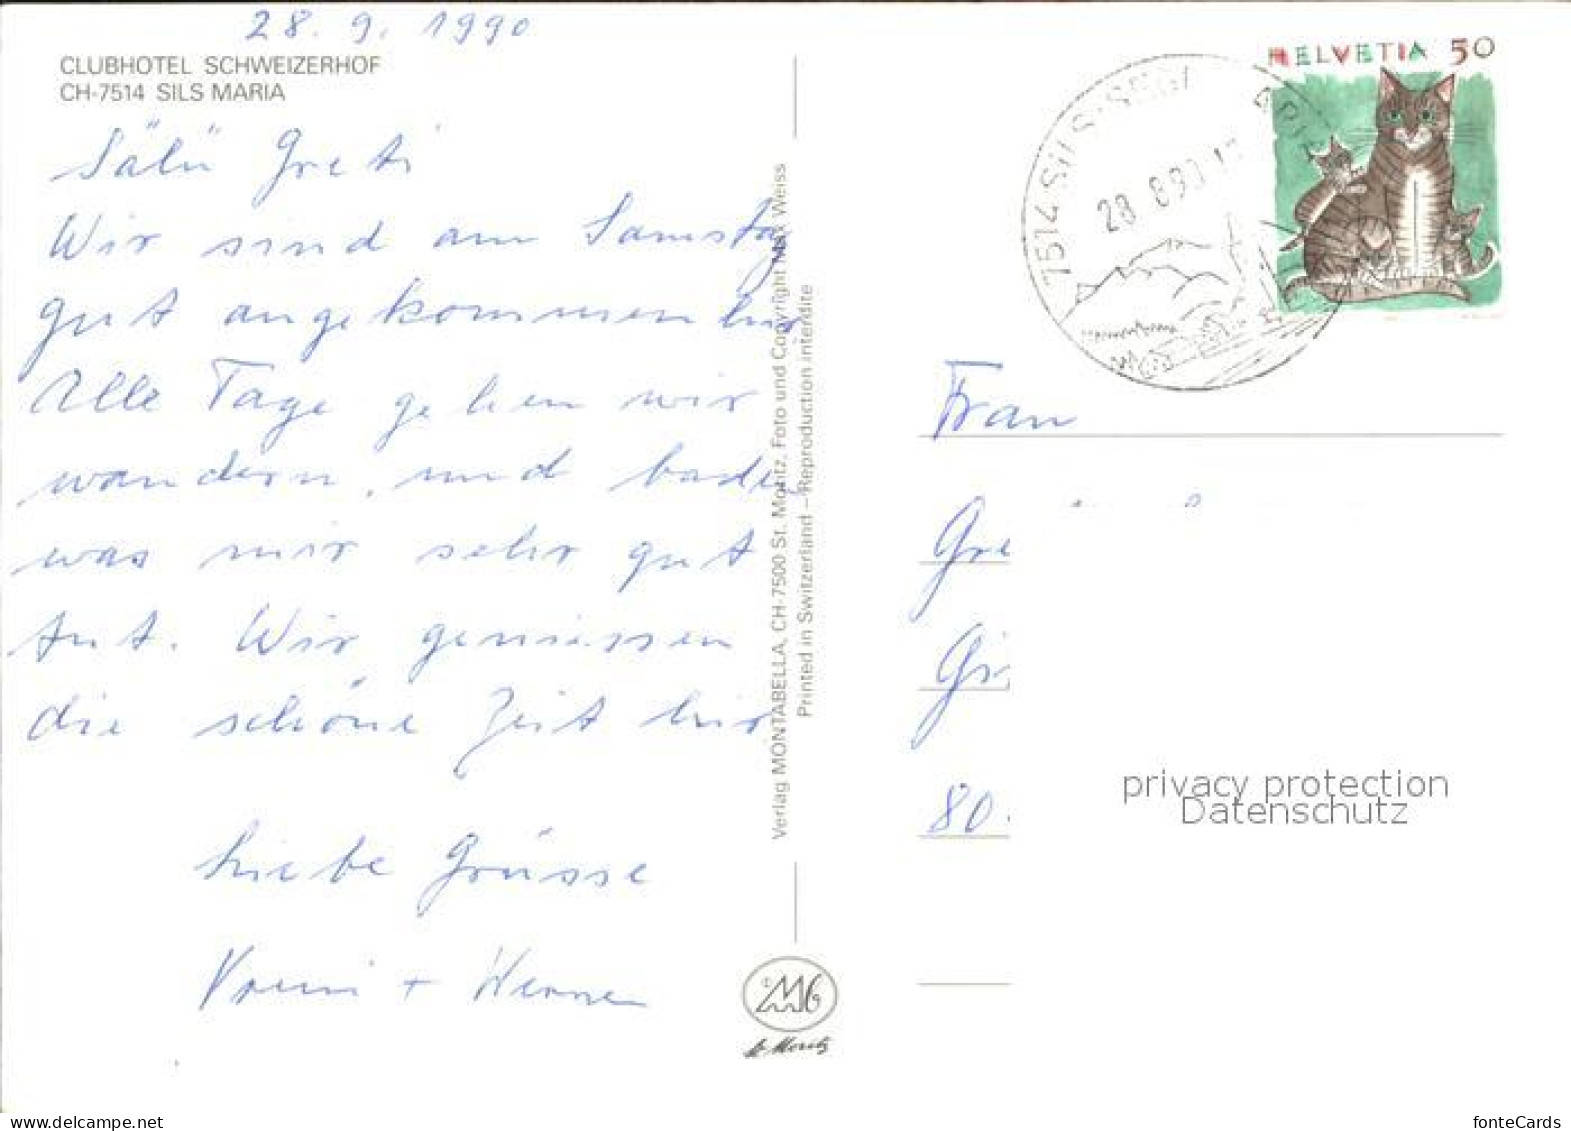 28. 9. 1990
CLUBHOTEL SCHWEIZERHOF
CH-7514 SILS MARIA
Sälü Greti
Wir sind am Samstag
gut angekommen hir
Alle Tage gehen wir
wandern, und baden
was mir sehr gut
tut. Wir geniessen
die schöne Zeit hir
Liebe Grüsse
Vreni + Werner
Verlag MONTABELLA, CH-7500 St. Moritz, Foto und Copyright Max Weiss
Printed in Switzerland – Reproduction interdite
MB
St. Moritz
HELVETIA 50
7514 SILS-SEGL
28 8 90
Frau
Gre
80.
privacy protection
Datenschutz
fonteCards